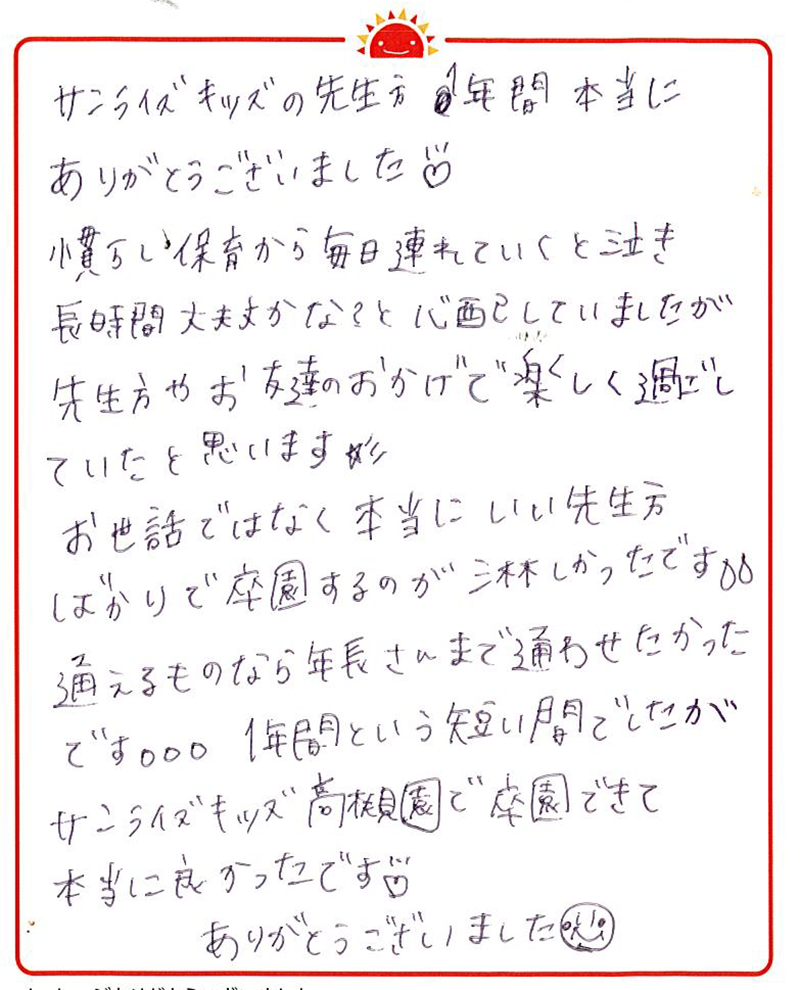 サンライズキッズの先生方 1年間 本当に
ありがとうございました♡
慣らし保育から毎日連れていくと泣き
長時間 大丈夫かな?と心配していましたが
先生方やお友達のおかげで楽しく過ごし
ていたと思います
お世話ではなく本当にいい先生方
ばかりで卒園するのが淋しかったです
通えるものなら年長さんまで通わせたかった
です。。。 1年間という短い間でしたが
サンライズキッズ高槻園で卒園できて
本当に良かったです♡
ありがとうございました